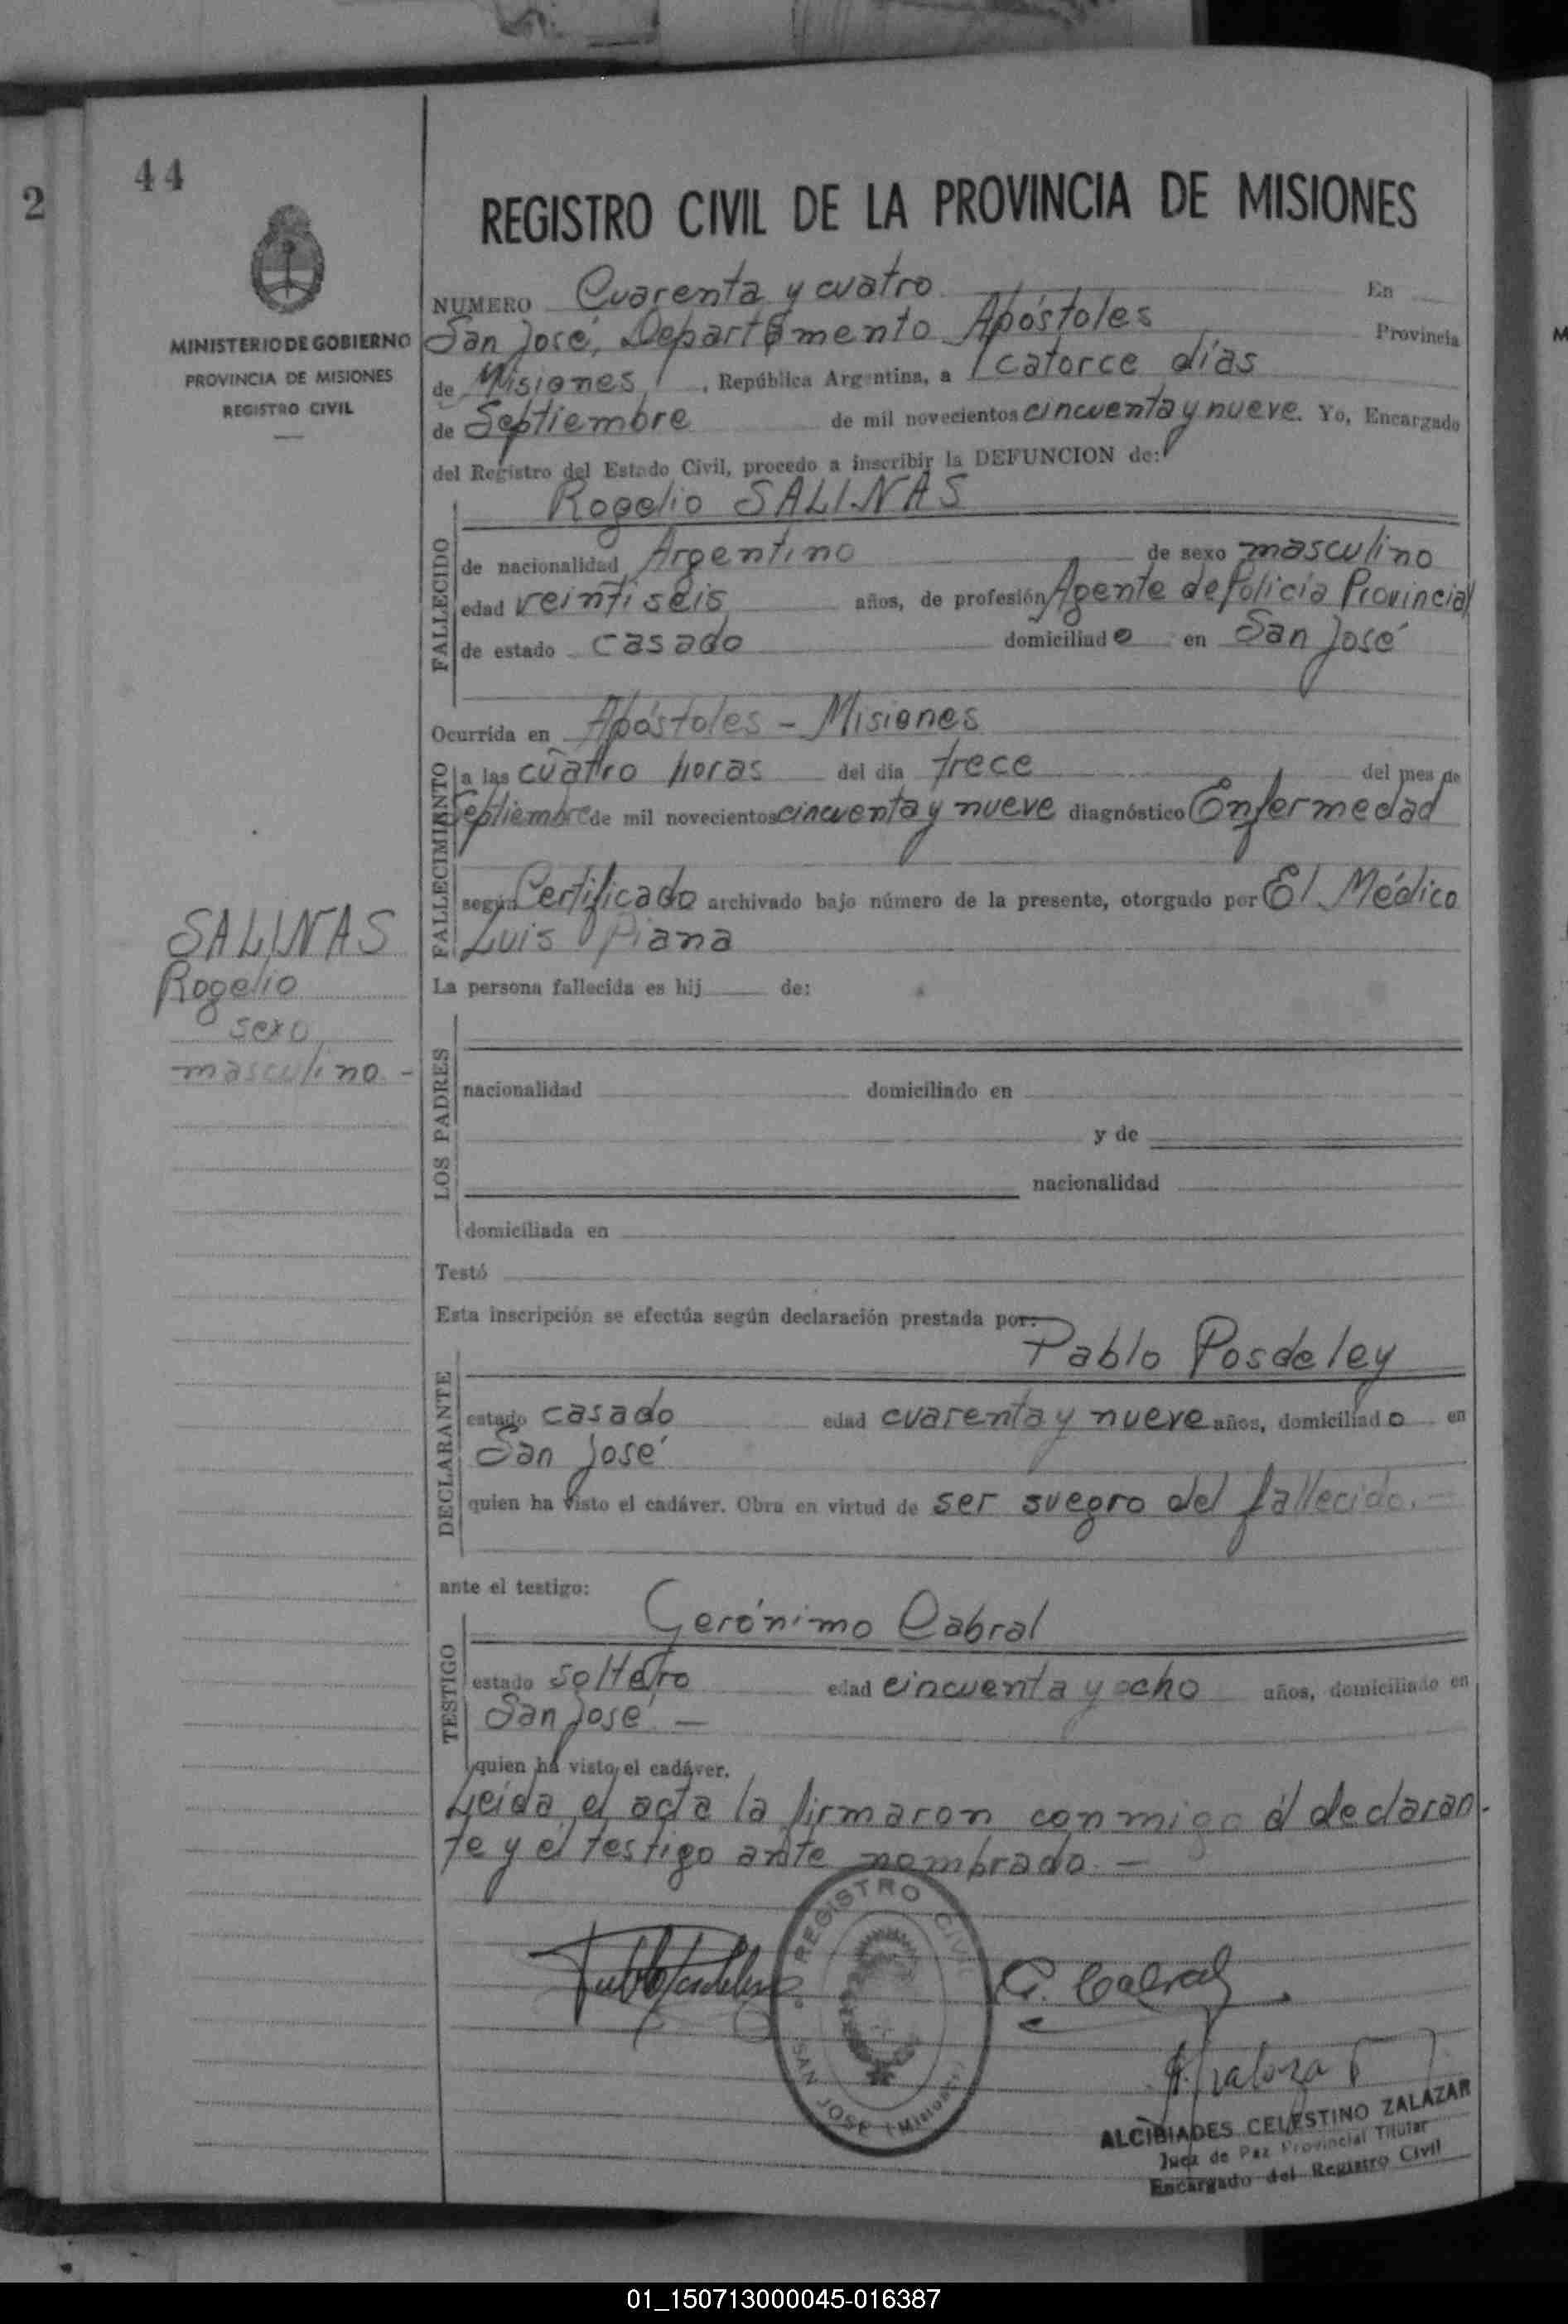 2
44
MINISTERIO DE GOBIERNO
PROVINCIA DE MISIONES
REGISTRO CIVIL
REGISTRO CIVIL DE LA PROVINCIA DE MISIONES
NUMERO Cuarenta y cuatro En
San José, Departamento Apóstoles Provincia
de Misiones, República Argentina, a catorce días
de Septiembre de mil novecientos cincuenta y nueve. Yo, Encargado
del Registro del Estado Civil, procedo a inscribir la DEFUNCION de:
Rogelio SALINAS
FALLECIDO
de nacionalidad Argentino de sexo masculino
edad veintiseis años, de profesión Agente de Policía Provincial
de estado casado domiciliado en San José
Ocurrida en Apóstoles - Misiones
FALLECIMIENTO
a las cuatro horas del día trece del mes de
Septiembre de mil novecientos cincuenta y nueve diagnóstico Enfermedad
según Certificado archivado bajo número de la presente, otorgado por El Médico
Luis Piana
SALINAS
Rogelio
sexo
masculino -
La persona fallecida es hij de:
LOS PADRES
nacionalidad domiciliado en
y de
nacionalidad
domiciliada en
Testó
Esta inscripción se efectúa según declaración prestada por:
Pablo Posdeley
DECLARANTE
estado casado edad cuarenta y nueve años, domiciliado en
San José
quien ha visto el cadáver. Obra en virtud de ser suegro del fallecido. -
ante el testigo:
Gerónimo Cabral
TESTIGO
estado soltero edad cincuenta y ocho años, domiciliado en
San José -
quien ha visto el cadáver.
Leída el acta la firmaron conmigo el declaran-
te y el testigo ante nombrado. -
REGISTRO CIVIL
SAN JOSE (Misiones)
G. Cabral
ALCIBIADES CELESTINO ZALAZAR
Juez de Paz Provincial Titular
Encargado del Registro Civil
01_150713000045-016387